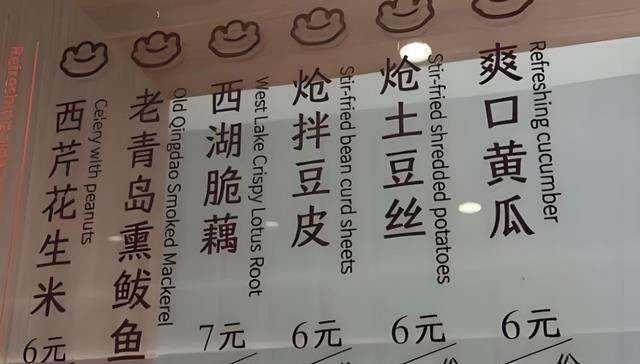 爽口黄瓜
Refreshing cucumber
6元
炝土豆丝
Stir-fried shredded potatoes
6元
炝拌豆皮
Stir-fried bean curd sheets
6元
西湖脆藕
West Lake Crispy Lotus Root
7元
老青岛熏鲅鱼
Old Qingdao Smoked Mackerel
西芹花生米
Celery with peanuts
6元
Refreshing